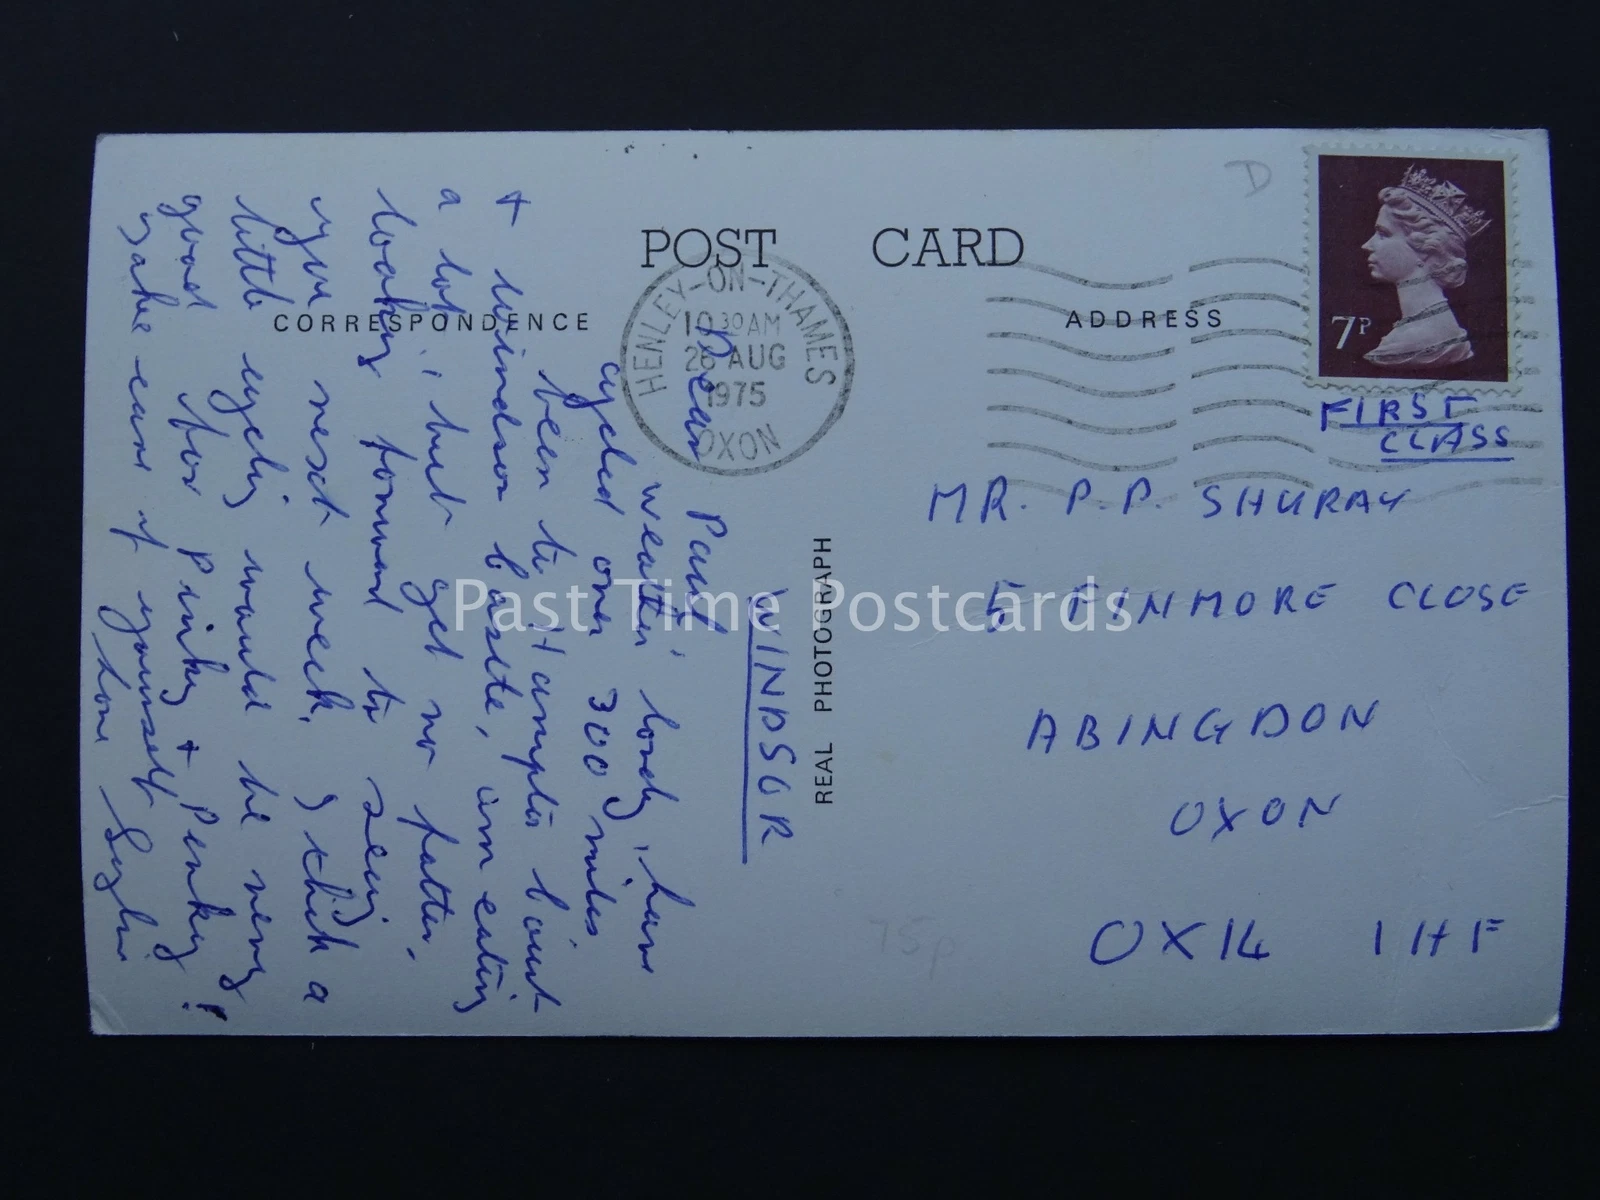 POST CARD
CORRESPONDENCE
ADDRESS
REAL PHOTOGRAPH
HENLEY-ON-THAMES
10 30 AM
26 AUG
1975
OXON
7P
D
FIRST
CLASS
MR. P.P. SHURAY
5 FINMORE CLOSE
ABINGDON
OXON
OX14 1HF
75p
WINDSOR
Dear Paul,
weather lovely, have
cycled over 300 miles
been to Hampton Court
+ windsor castle, am eating
a lot, but get no fatter,
looking forward to seeing
you next week, I think a
little cycling would be very
good for Pinky + Perky!
take care of yourself
love Sylvi
Past Time Postcards